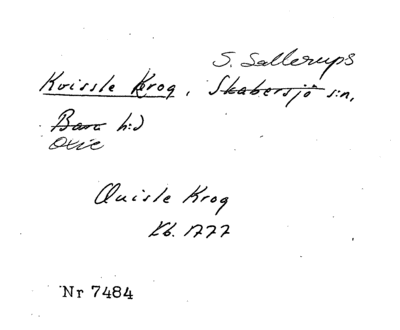 S. Sallerups
Kvissle Krog, Skabersjö s:n,
Bara h:d
Oxie
Quisle Krog
Kb. 1777
Nr 7484